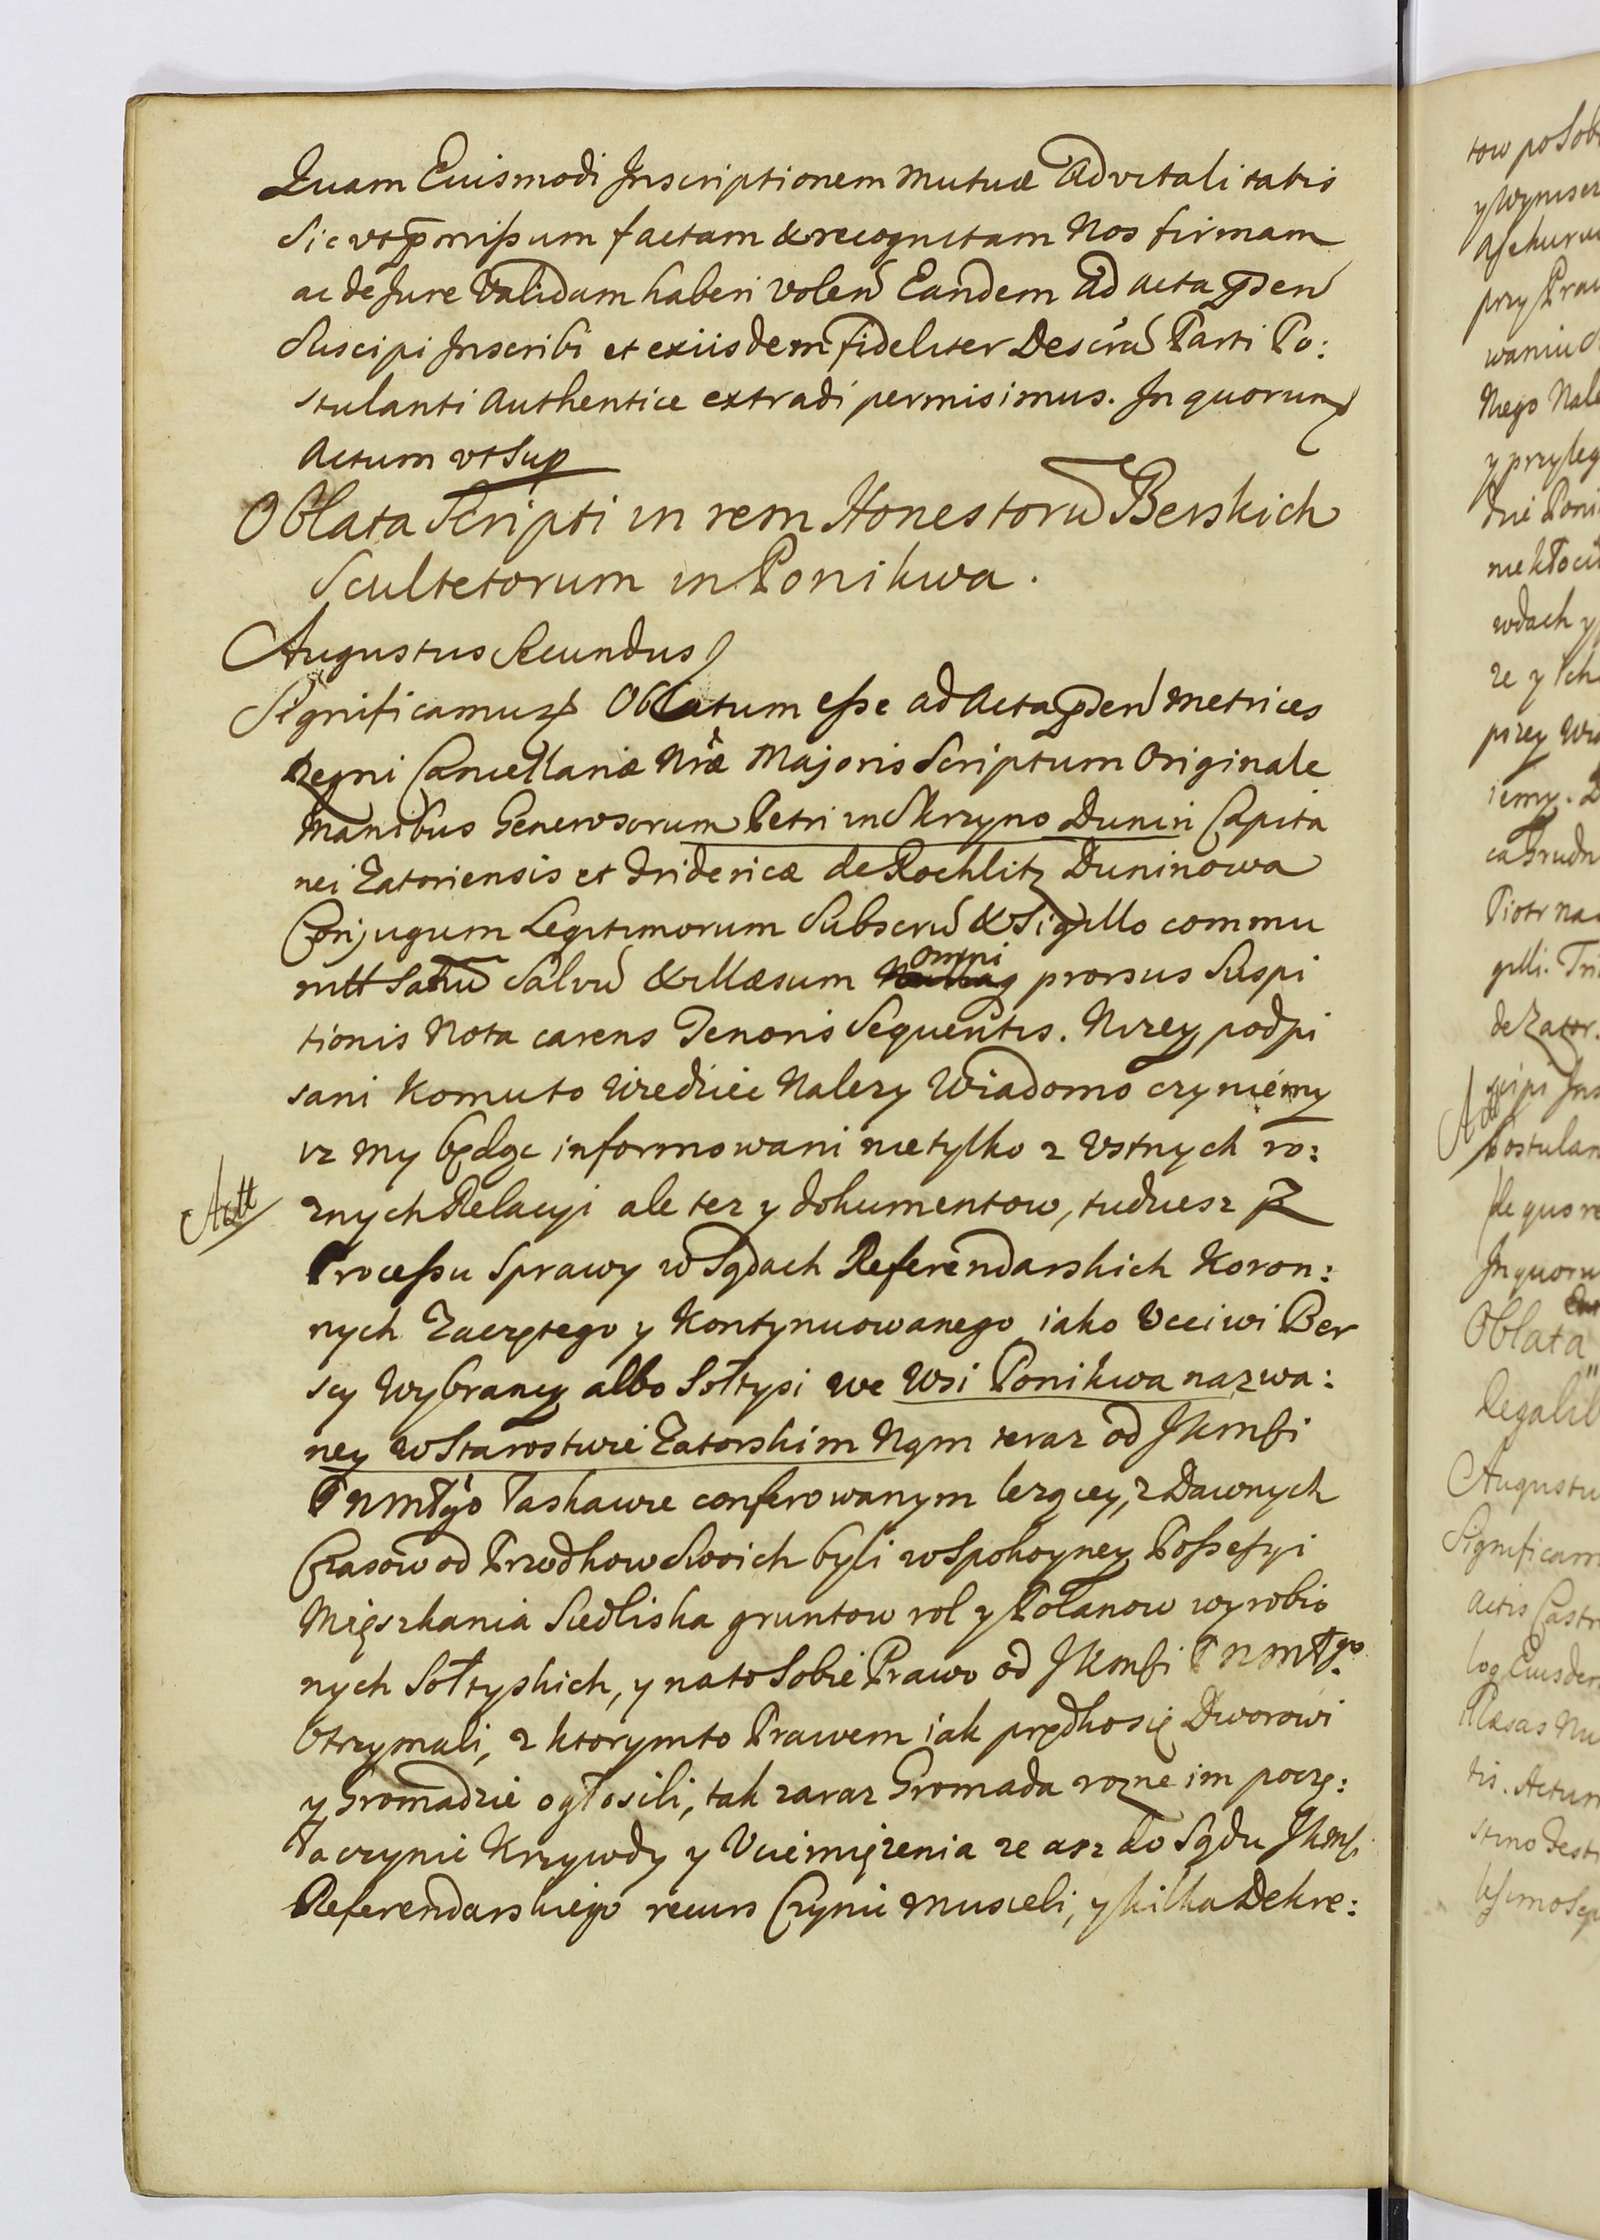 Quam Euismodi Inscriptionem mutuæ Advitalitatis
Sic vt p̄mißum factam & recognitam Nos firmam
ac de Jure Validam haberi volen̄ Eandem Ad acta p̄sen̄
Suscipi Inscribi et exiisdem fideliter Descrū Parti Po:
stulanti Authentice extradi permisimus. In quorum
Actum vt Sup
Oblata Scripti in rem Honestorū Berskich
Scultetorum in Ponikwa.
Augustus Secundus
Significamus Oblatum eße ad Acta p̄sen̄ Metrices
Regni Cancellariæ Nr̄æ Majoris Scriptum Originale
Manibus Generosorum Petri in Skrzyno Dunin Capita
nei Zatoriensis et Fridericæ de Rochlitz Duninowa
Conjugum Legitimorum Subscrū & Sigillo commu
nitt Satū Salvū & illæsum omni prorsus Suspi
tionis Nota carens Tenoris Sequentis. Nizey podpi
sani Komuto Wiedziec Nalezy Wiadomo czyniemy
iz my będąc informowani nietylko z Vstnych ro:
znych Relacyi ale tez y dokumentow, tudziesz z
Actt
Proceßu Sprawy w Sądach Referendarskich Koron:
nych Zaczętego y Kontynuowanego iako Vcciwi Ber
scy Wybrancy albo Sołtysi we Wsi Ponikwa nazwa:
ney w Starostwie Zatorskim Nąm teraz od JKmſi
P N Młgo łaskawie conferowanym lezącey, z Dawnych
Czasow od Przodkow Swoich byli w Spokoyney Poßeſyi
Mięszkania Siedliska gruntow rol y Polanow wyrobio
nych Sołtyskich, y na to Sobie Prawo od JKmſi P N Młgo
Otrzymali, z ktorymto Prawem iak prędko się Dworowi
y Gromadzie ogłosili, tak zaraz Gromada rozne im poczę:
ła czynic Krzywdy y Vciemięzenia ze asz do Sądu JKmſi
Referendarskiego recurs Czynic musieli, y kilka Dekre:
tow po Sob
przy Praw
Nego Nale
y przyleg
wdach y
ze y Ich
iemy.
Piotr na
gilli.
de Zator.
Att
scipi Ins
Postulan
In quoru
Oblata
Regalib
Augustu
Significam
Actis Castr
tis. Actum